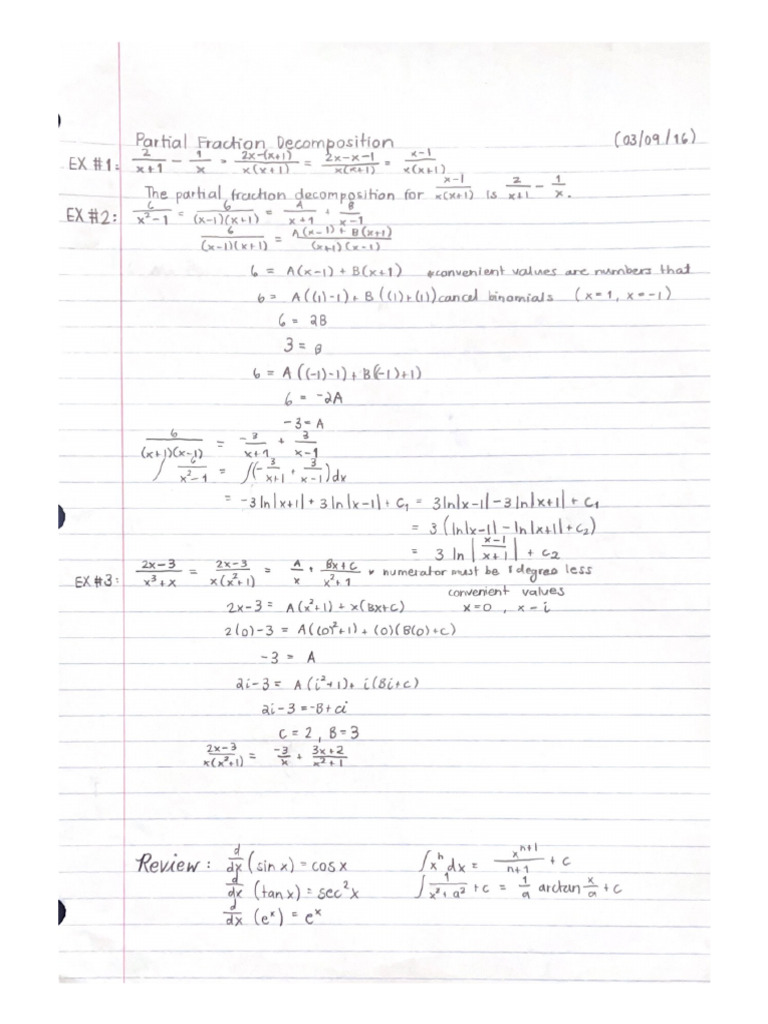 Partial Fraction Decomposition (03/09/16)
EX #1: 2/(x+1) - 1/x = (2x-(x+1))/(x(x+1)) = (2x-x-1)/(x(x+1)) = (x-1)/(x(x+1))
The partial fraction decomposition for (x-1)/(x(x+1)) is 2/(x+1) - 1/x.
EX #2: 6/(x²-1) = 6/((x-1)(x+1)) = A/(x+1) + B/(x-1)
6/((x-1)(x+1)) = (A(x-1) + B(x+1))/((x+1)(x-1))
6 = A(x-1) + B(x+1) *convenient values are numbers that
6 = A((1)-1) + B((1)+(1)) cancel binomials (x=1, x=-1)
6 = 2B
3 = B
6 = A((-1)-1) + B(-1)+1)
6 = -2A
-3 = A
6/((x+1)(x-1)) = -3/(x+1) + 3/(x-1)
∫ 6/(x²-1) = ∫(-3/(x+1) + 3/(x-1))dx
= -3ln|x+1| + 3ln|x-1| + C₁ = 3ln|x-1| - 3ln|x+1| + C₁
= 3(ln|x-1| - ln|x+1| + C₂)
= 3 ln|(x-1)/(x+1)| + C₂
EX #3: (2x-3)/(x³+x) = (2x-3)/(x(x²+1)) = A/x + (Bx+C)/(x²+1) * numerator must be 1 degree less
convenient values
2x-3 = A(x²+1) + x(Bx+C) x=0, x-i
2(0)-3 = A((0)²+1) + (0)(B(0)+C)
-3 = A
2i-3 = A(i²+1) + i(Bi+C)
2i-3 = -B+Ci
C = 2, B = 3
(2x-3)/(x(x²+1)) = -3/x + (3x+2)/(x²+1)
Review: d/dx (sin x) = cos x ∫xⁿ dx = xⁿ⁺¹/(n+1) + C
d/dx (tan x) = sec²x ∫ 1/(x²+a²) + C = 1/a arctan x/a + C
d/dx (eˣ) = eˣ